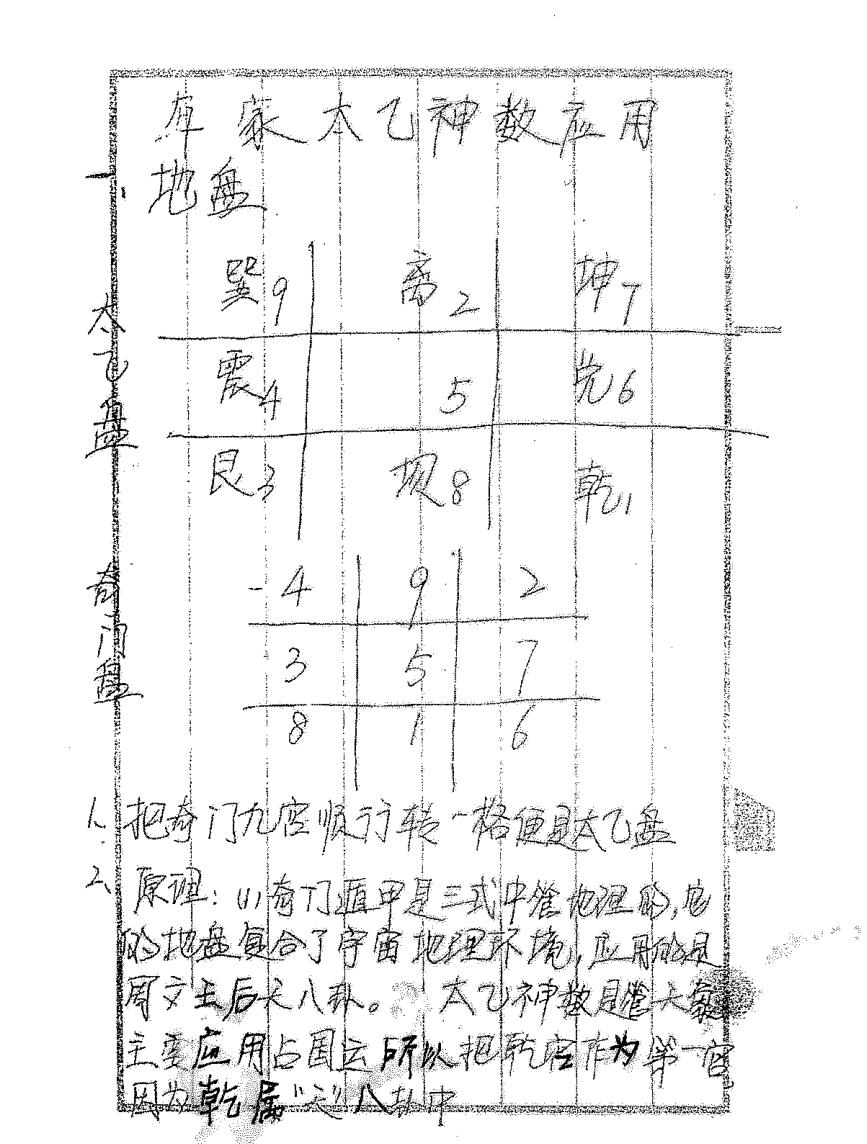 军家太乙神数应用
一、地盘
太乙盘
巽9 离2 坤7
震4 5 兑6
艮3 坝8 乾1
奇门盘
4 9 2
3 5 7
8 1 6
1、把奇门九宫顺行转一格便是太乙盘
2、原理：(1)奇门遁甲是三式中管地理的，它
的地盘复合了宇宙地理环境，应用的是
周文王后天八卦。 太乙神数是管天象
主要应用占国运所以把乾宫作为第一宫，
因为乾属“天”八卦中